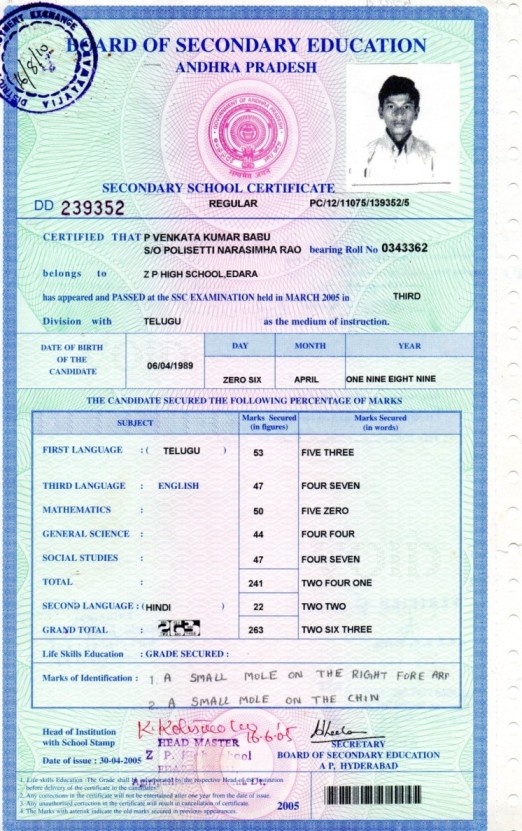 BOARD OF SECONDARY EDUCATION
ANDHRA PRADESH
SECONDARY SCHOOL CERTIFICATE
DD 239352 REGULAR PC/12/11075/139352/5
CERTIFIED THAT P VENKATA KUMAR BABU
S/O POLISETTI NARASIMHA RAO bearing Roll No 0343362
belongs to Z P HIGH SCHOOL,EDARA
has appeared and PASSED at the SSC EXAMINATION held in MARCH 2005 in THIRD
Division with TELUGU as the medium of instruction.
DATE OF BIRTH OF THE CANDIDATE 06/04/1989 DAY MONTH YEAR
ZERO SIX APRIL ONE NINE EIGHT NINE
THE CANDIDATE SECURED THE FOLLOWING PERCENTAGE OF MARKS
SUBJECT Marks Secured (in figures) Marks Secured (in words)
FIRST LANGUAGE : ( TELUGU ) 53 FIVE THREE
THIRD LANGUAGE : ENGLISH 47 FOUR SEVEN
MATHEMATICS : 50 FIVE ZERO
GENERAL SCIENCE : 44 FOUR FOUR
SOCIAL STUDIES : 47 FOUR SEVEN
TOTAL : 241 TWO FOUR ONE
SECOND LANGUAGE : ( HINDI ) 22 TWO TWO
GRAND TOTAL : 263 263 TWO SIX THREE
Life Skills Education : GRADE SECURED :
Marks of Identification : 1. A SMALL MOLE ON THE RIGHT FORE ARP
2. A SMALL MOLE ON THE CHIN
Head of Institution
with School Stamp
HEAD MASTER 16.6.05
SECRETARY
BOARD OF SECONDARY EDUCATION
A P, HYDERABAD
Date of issue : 30-04-2005
1. Life skills Education :The Grade shall be incorporated by the respective Head of the Institution
before delivery of the certificate to the candidates.
2. Any corrections in the certificate will not be entertained after one year from the date of issue.
3. Any unauthorised correction in the certificate will result in cancellation of certificate.
4. The Marks with asterisk indicate the old marks secured in previous appearances.
2005